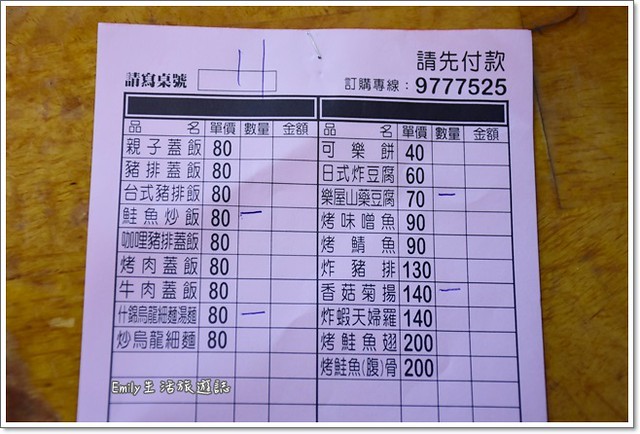 請先付款
請寫桌號 4
訂購專線：9777525
品名 單價 數量 金額
親子蓋飯 80
豬排蓋飯 80
台式豬排飯 80
鮭魚炒飯 80 一
咖哩豬排蓋飯 80
烤肉蓋飯 80
牛肉蓋飯 80
什錦烏龍細麵湯麵 80 一
炒烏龍細麵 80
品名 單價 數量 金額
可樂餅 40
日式炸豆腐 60
樂屋山藥豆腐 70 一
烤味噌魚 90
烤鯖魚 90
炸豬排 130
香菇菊揚 140 一
炸蝦天婦羅 140
烤鮭魚翅 200
烤鮭魚(腹)骨 200
Emily生活旅遊誌